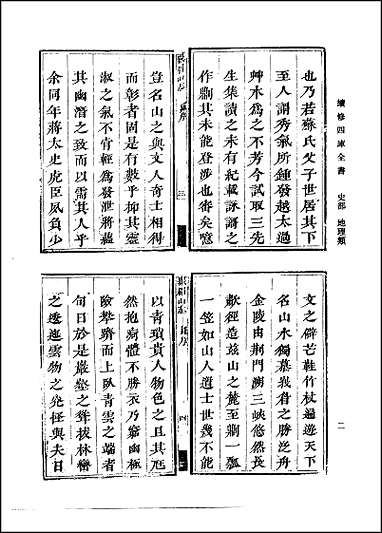 續修四庫全書 史部 地理類
二
也乃若蘇氏父子世居其下
至人謂秀氣所鍾發越太過
艸木為之不芳今試取三先
生集讀之未有紀載詠謌之
作則其未能登涉也審矣噫
序 三
豈名山之與文人奇士相得
而彰者固是有數乎抑其靈
淑之氣不肯輕為發泄將蘊
其幽潛之致而以需其人乎
余同年蔣太史虎臣夙負少
文之僻芒鞋竹杖遍遊天下
名山水獨慕我眉之勝泛舟
金陵由荆門溯三峽悠然長
歗徑造茲山之麓至則一瓢
一笠如山人道士世幾不能
山志 序 四
以青瑣貴人物色之且其尫
然抱痾體不勝衣乃窮幽極
險攀躋而上臥青雲之端者
旬日於是巖壑之聳拔林巒
之逶迤雲物之詭怪與夫日